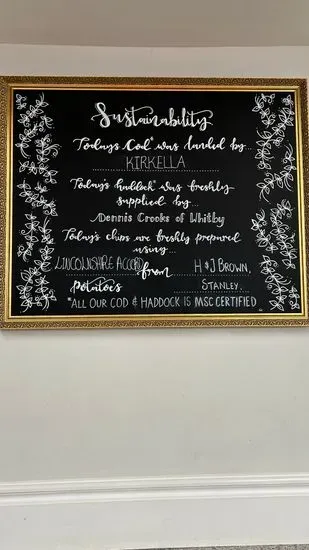 Sustainability
Today's Cod* was landed by...
KIRKELLA
Today's haddock* was freshly
supplied by...
Dennis Crooks of Whitby
Today's chips are freshly prepared
using...
LINCOLNSHIRE ACCORD from H & J BROWN,
Potatoes STANLEY.
*ALL OUR COD & HADDOCK IS MSC CERTIFIED